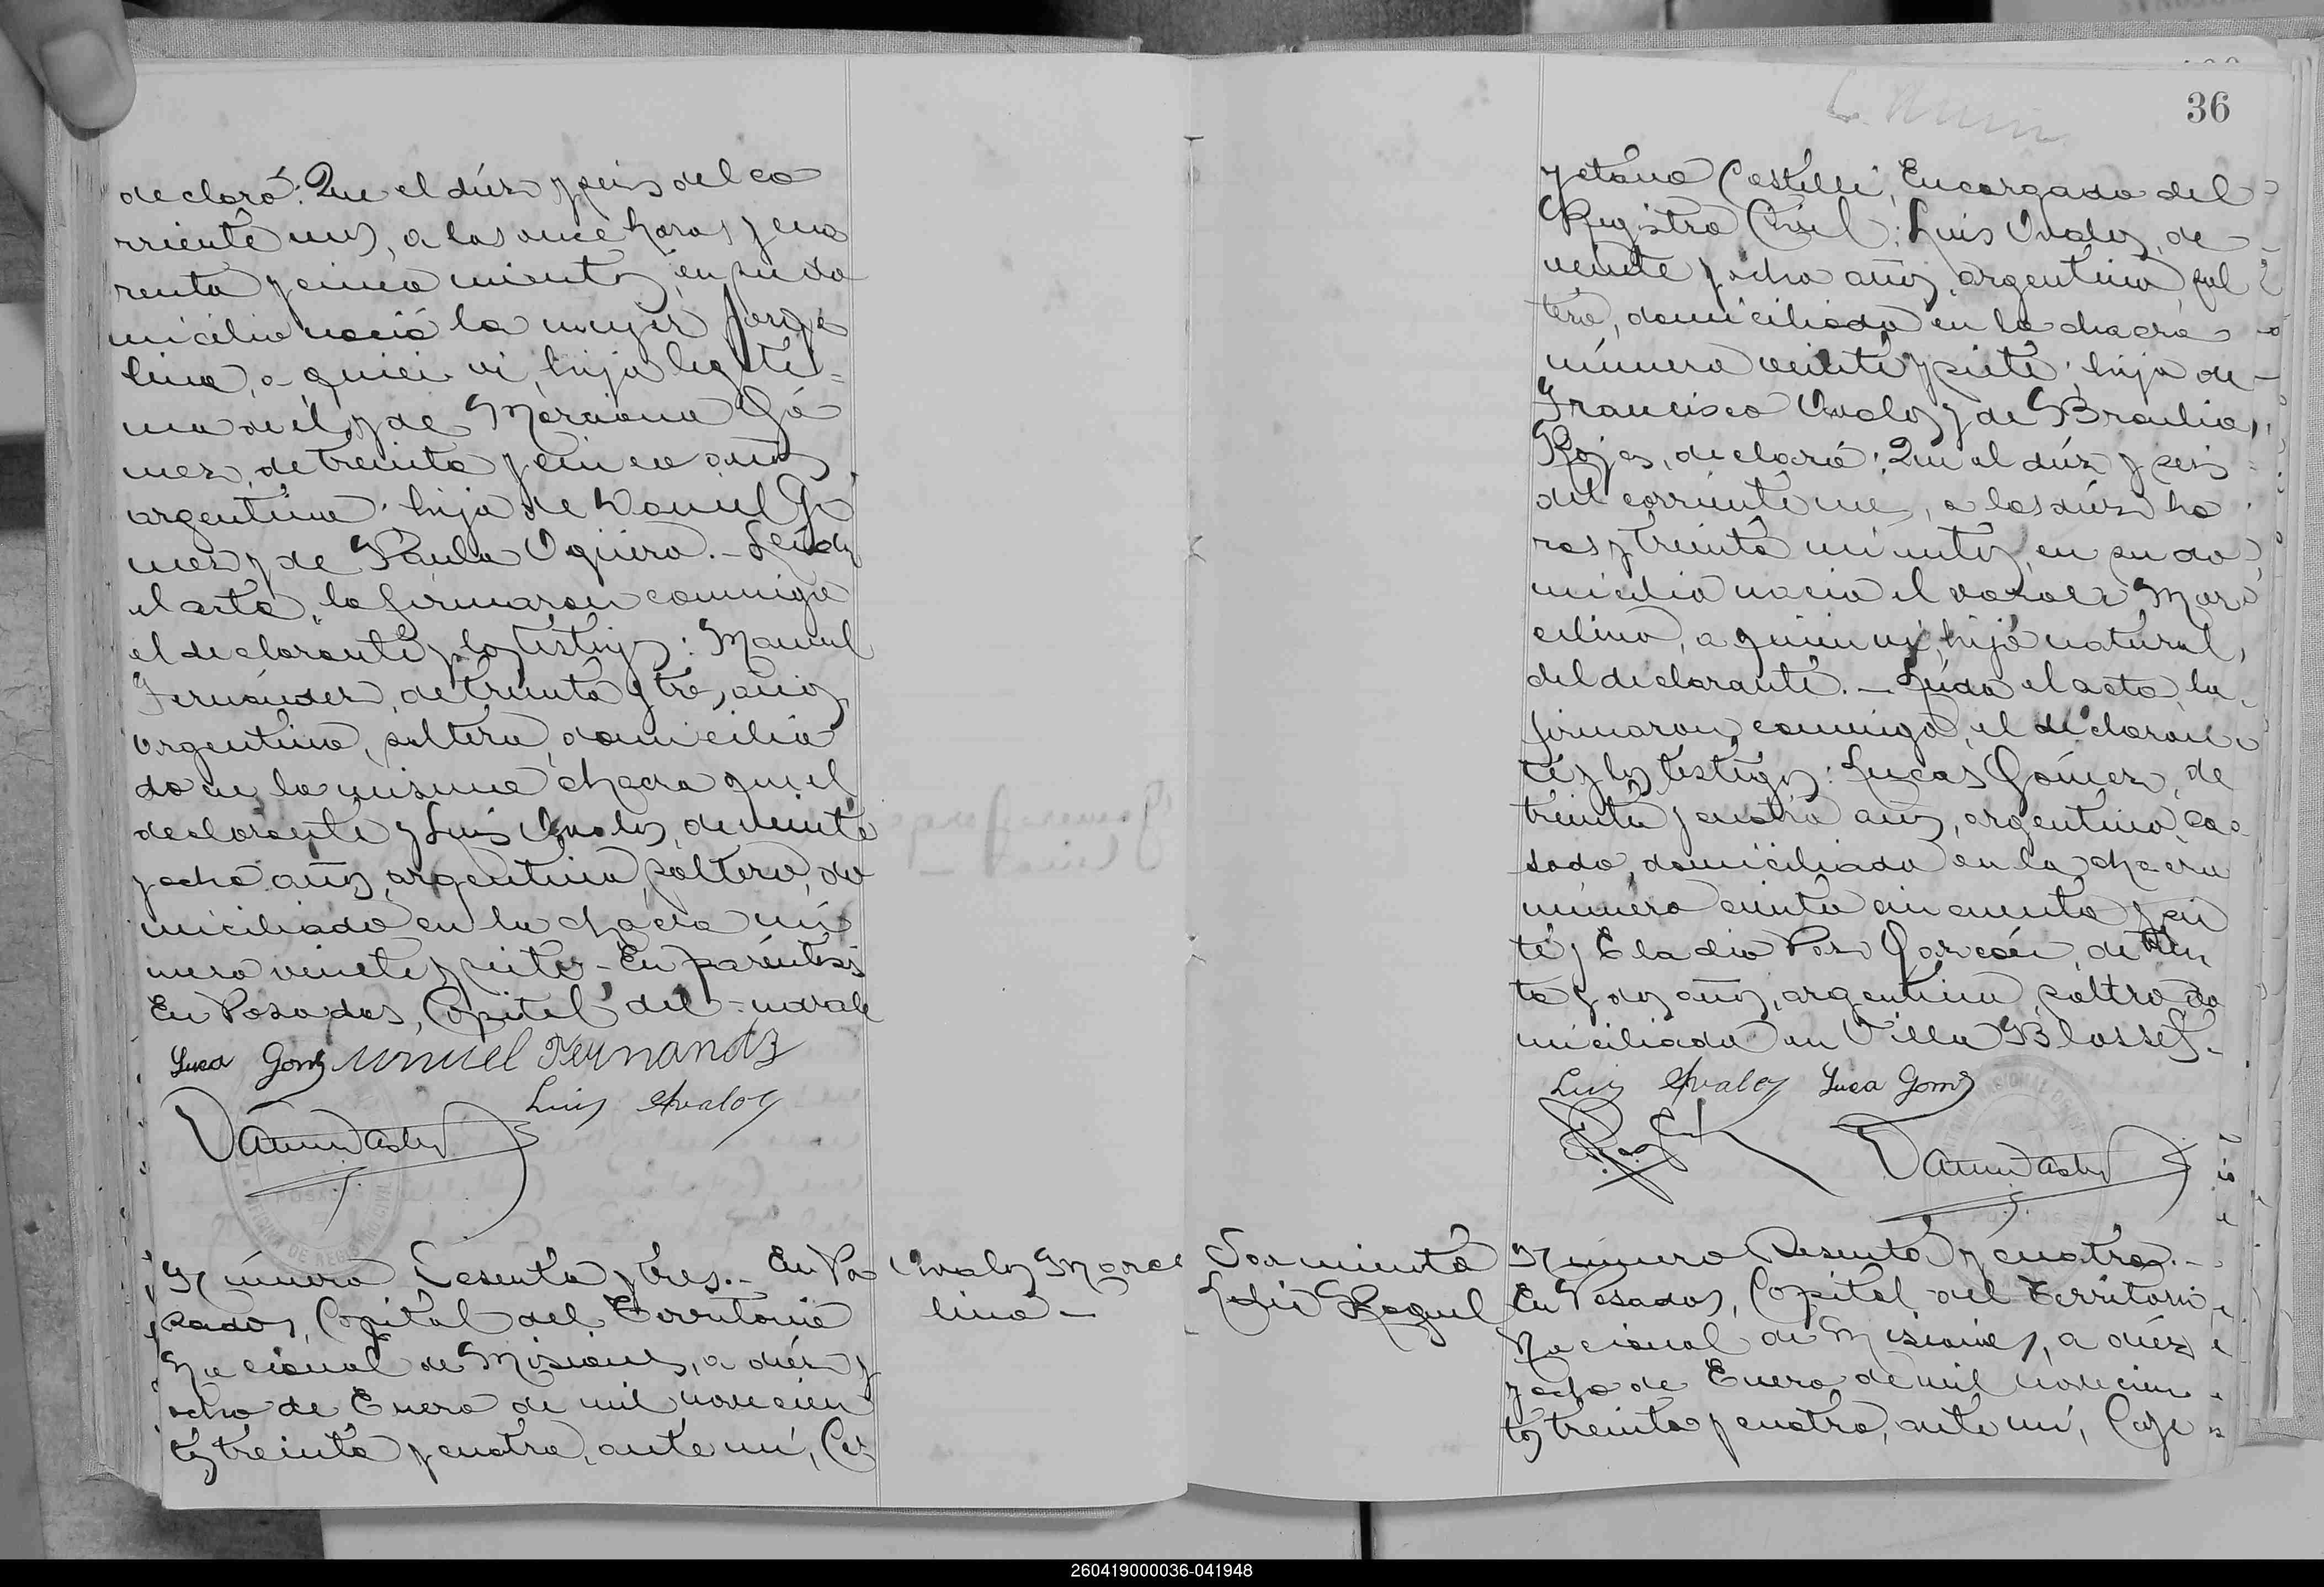 declaró: Que el diéz y seis del co
rriente mes, a las once horas y cua
renta y cinco minutos, en su do
micilio nació la mujer Jorge
lina, a quien vi, hija legíti-
ma de él y de Marciana Gó
mez, de treinta y cinco años,
argentina, hija de Daniel Gó
mez y de Paula Agüero.- Leida
el acta, la firmaron conmigo
el declarante y los testigos: Manuel
Fernández, de treinta y tres años,
argentino, soltero, domicilia
do en la misma chacra que el
declarante y Luis Avalos, de veinte
y ocho años, argentino, soltero, do
miciliado en la chacra nú
mero veinte y siete.- En paréntesis
En Posadas, Capital del - no vale
Luca Gomz Manuel Fernandz
Luis Avalos
Número Sesenta y tres.- En Po
sadas, Capital del Territorio
Nacional de Misiones, a diéz y
ocho de Enero de mil novecien
tos treinta y cuatro, ante mí, Ca
Avalos Marce
lino -
36
yetano Castelli, Encargado del
Registro Civil: Luis Avalos, de
veinte y ocho años, argentino, sol
tero, domiciliado en la chacra
número veinte y siete, hijo de
Francisco Avalos y de Braulia
Rojas, declaró: Que el diéz y seis
del corriente mes, a las diéz ho
ras y treinta minutos, en su do
micilio nació el varón Mar
celino, a quien vi, hijo natural
del declarante.- Leida el acta, la
firmaron conmigo, el declaran
te y los testigos: Lucas Gómez, de
treinta y cuatro años, argentino, ca
sado, domiciliado en la chacra
número ciento cincuenta y sie
te y Eladio Roz Garcón, de trein
ta y dos años, argentino, soltero, do
miciliado en Villa Blosset.-
Luis Avalos Luca Gomz
Sarmiento
Raquel
Número Sesenta y cuatro.-
En Posadas, Capital del Territorio
Nacional de Misiones, a diéz
y ocho de Enero de mil novecien
tos treinta y cuatro, ante mí, Caye
260419000036-041948